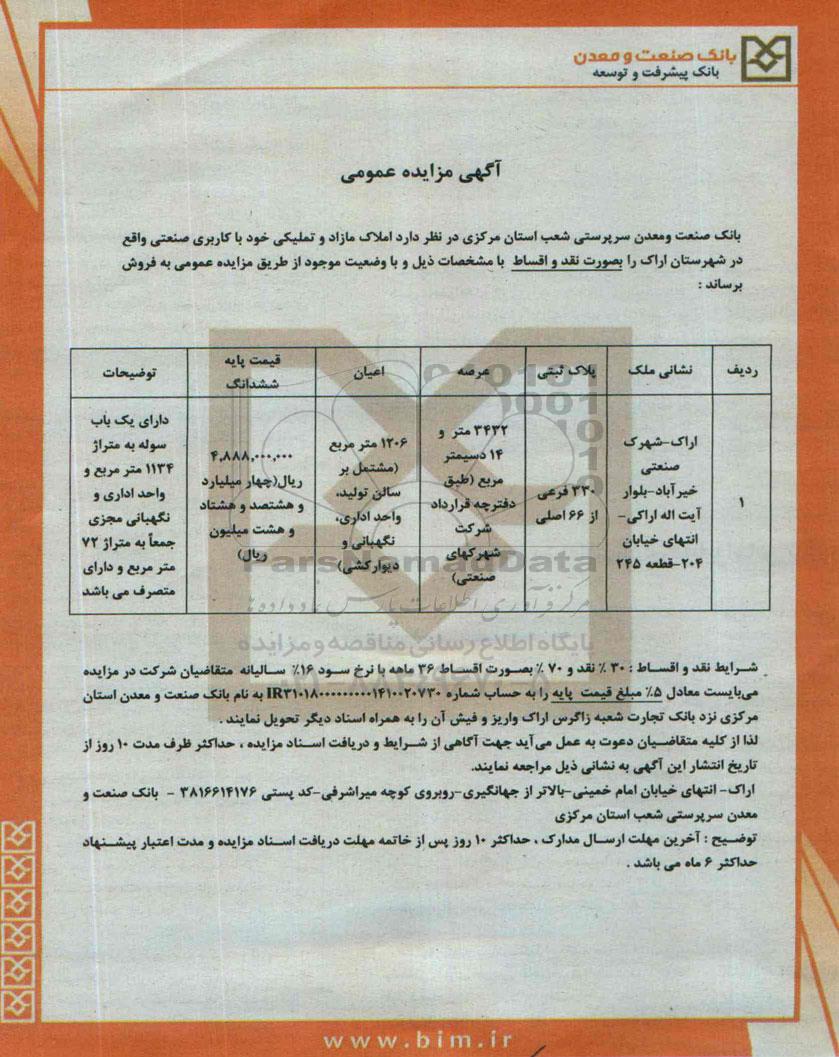 بانک صنعت و معدن
بانک پیشرفت و توسعه
آگهی مزایده عمومی
بانک صنعت ومعدن سرپرستی شعب استان مرکزی در نظر دارد املاک مازاد و تملیکی خود با کاربری صنعتی واقع
در شهرستان اراک را بصورت نقد و اقساط با مشخصات ذیل و با وضعیت موجود از طریق مزایده عمومی به فروش
برساند :
ردیف نشانی ملک پلاک ثبتی عرصه اعیان قیمت پایه ششدانگ توضیحات
۱
اراک-شهرک
صنعتی
خیرآباد-بلوار
آیت اله اراکی-
انتهای خیابان
۲۰۴-قطعه ۲۴۵
۳۳۰ فرعی
از ۶۶ اصلی
۳۴۳۲ متر و
۱۴ دسیمتر
مربع (طبق
دفترچه قرارداد
شرکت
شهرکهای
صنعتی)
۱۲۰۶ متر مربع
(مشتمل بر
سالن تولید،
واحد اداری،
نگهبانی و
دیوارکشی)
۴,۸۸۸,۰۰۰,۰۰۰
ریال(چهار میلیارد
و هشتصد و هشتاد
و هشت میلیون
ریال)
دارای یک باب
سوله به متراژ
۱۱۳۴ متر مربع و
واحد اداری و
نگهبانی مجزی
جمعاً به متراژ ۷۲
متر مربع و دارای
متصرف می باشد
ParsNamadData
مرکز فرآوری اطلاعات پارس نماد داده ها
پایگاه اطلاع رسانی مناقصه و مزایده
شرایط نقد و اقساط : ۳۰ ٪ نقد و ۷۰ ٪ بصورت اقساط ۳۶ ماهه با نرخ سود ۱۶٪ سالیانه متقاضیان شرکت در مزایده
می‌بایست معادل ۵٪ مبلغ قیمت پایه را به حساب شماره IR۳۱۰۱۸۰۰۰۰۰۰۰۰۰۱۴۱۰۰۲۰۷۳۰ به نام بانک صنعت و معدن استان
مرکزی نزد بانک تجارت شعبه زاگرس اراک واریز و فیش آن را به همراه اسناد دیگر تحویل نمایند .
لذا از کلیه متقاضیان دعوت به عمل می‌آید جهت آگاهی از شرایط و دریافت اسناد مزایده ، حداکثر ظرف مدت ۱۰ روز از
تاریخ انتشار این آگهی به نشانی ذیل مراجعه نمایند.
اراک- انتهای خیابان امام خمینی-بالاتر از جهانگیری-روبروی کوچه میراشرفی-کد پستی ۳۸۱۶۶۱۴۱۷۶ - بانک صنعت و
معدن سرپرستی شعب استان مرکزی
توضیح : آخرین مهلت ارسال مدارک ، حداکثر ۱۰ روز پس از خاتمه مهلت دریافت اسناد مزایده و مدت اعتبار پیشنهاد
حداکثر ۶ ماه می باشد .
www.bim.ir